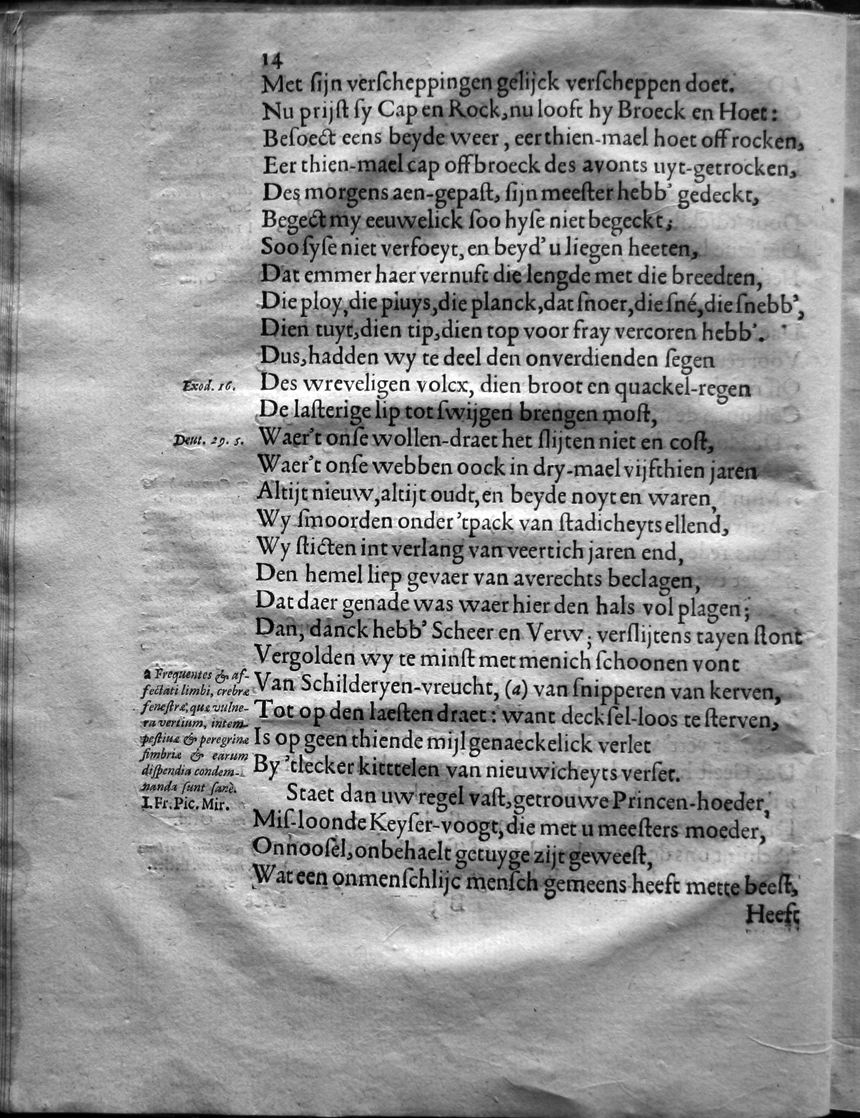 14
Met ſijn verſcheppingen gelijck verſcheppen doet.
Nu prijſt ſy Cap en Rock, nu looft hy Broeck en Hoet:
Beſoect eens beyde weer, eer thien-mael hoet off rocken,
Eer thien-mael cap off broeck des avonts uyt-getrocken,
Des morgens aen-gepaſt, ſijn meeſter hebb' gedeckt,
Begect my eeuwelick ſoo hyſe niet begeckt;
Soo ſyſe niet verfoeyt, en beyd' u liegen heeten,
Dat emmer haer vernuft die lengde met die breedten,
Die ploy, die piuys, die planck, dat ſnoer, die ſné, die ſnebb',
Dien tuyt, dien tip, dien top voor fray vercoren hebb'.
Dus, hadden wy te deel den onverdienden ſegen
Exod. 16.
Des wreveligen volcx, dien broot en quackel-regen
De laſterige lip tot ſwijgen brengen moſt,
Deut. 29. 5.
Waer't onſe wollen-draet het ſlijten niet en coſt,
Waer't onſe webben oock in dry-mael vijfthien jaren
Altijt nieuw, altijt oudt, en beyde noyt en waren,
Wy ſmoorden onder 'tpack van ſtadicheyts ellend,
Wy ſticten int verlang van veertich jaren end,
Den hemel liep gevaer van averechts beclagen,
Dat daer genade was waer hier den hals vol plagen;
Dan, danck hebb' Scheer en Verw; verſlijtens tayen ſtont
Vergolden wy te minſt met menich ſchoonen vont
Van Schilderyen-vreucht, (a) van ſnipperen van kerven,
Tot op den laeſten draet: want deckſel-loos te ſterven,
Is op geen thiende mijl genaeckelick verlet
By 'tlecker kitttelen van nieuwicheyts verſet.
a Frequentes & af-
fectati limbi, crebræ
feneſtræ, quæ vulne-
ra vertium, intem-
peſtiuæ & peregrinæ
fimbriæ & earum
diſpendia condem-
nanda ſunt ſanè.
I. Fr. Pic. Mir.
Staet dan uw regel vaſt, getrouwe Princen-hoeder,
Miſ-loonde Keyſer-voogt, die met u meeſters moeder,
Onnooſel, onbehaelt getuyge zijt geweeſt,
Wat een onmenſchlijc menſch gemeens heeft mette beeſt,
Heeft